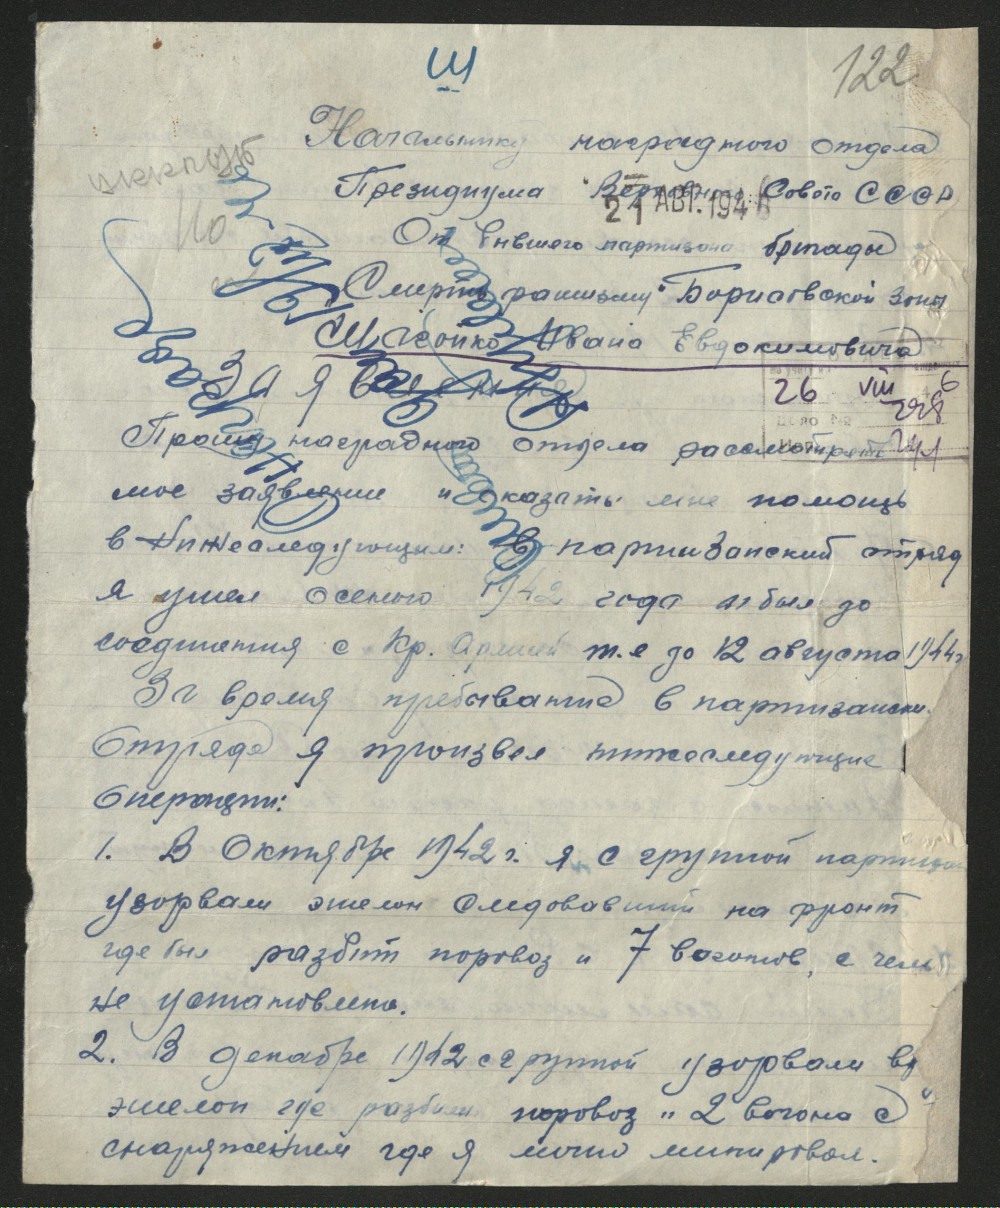 Ш
122
Начальнику наградного отдела
Президиума Верховн Совета СССР
21 АВГ. 194
От бывшего партизана бригады
Смерть фашизму" Борисовской зоны
Ивана Евдокимовича
26 VIII 6
Заявление
Прошу наградного отдела рассмотреть
мое заявление и оказать мне помощь
в нижеследующим: В партизанский отряд
я ушел осенью 1942 года и был до
соединения с Кр. Армией т.е до 12 августа 1944 г
За время пребывание в партизанск.
отряде я произвел нижеследующие
операции:
1. В Октябре 1942 г. я с группой партизан
узорвали эшелон следовавший на фронт
где был разбит поровоз и 7 вагонов, с чем
не установлено.
2. В декабре 1942 с группой узорвали
эшелон где разбили поровоз и 2 вагона с
снаряжением где я лично минировал.